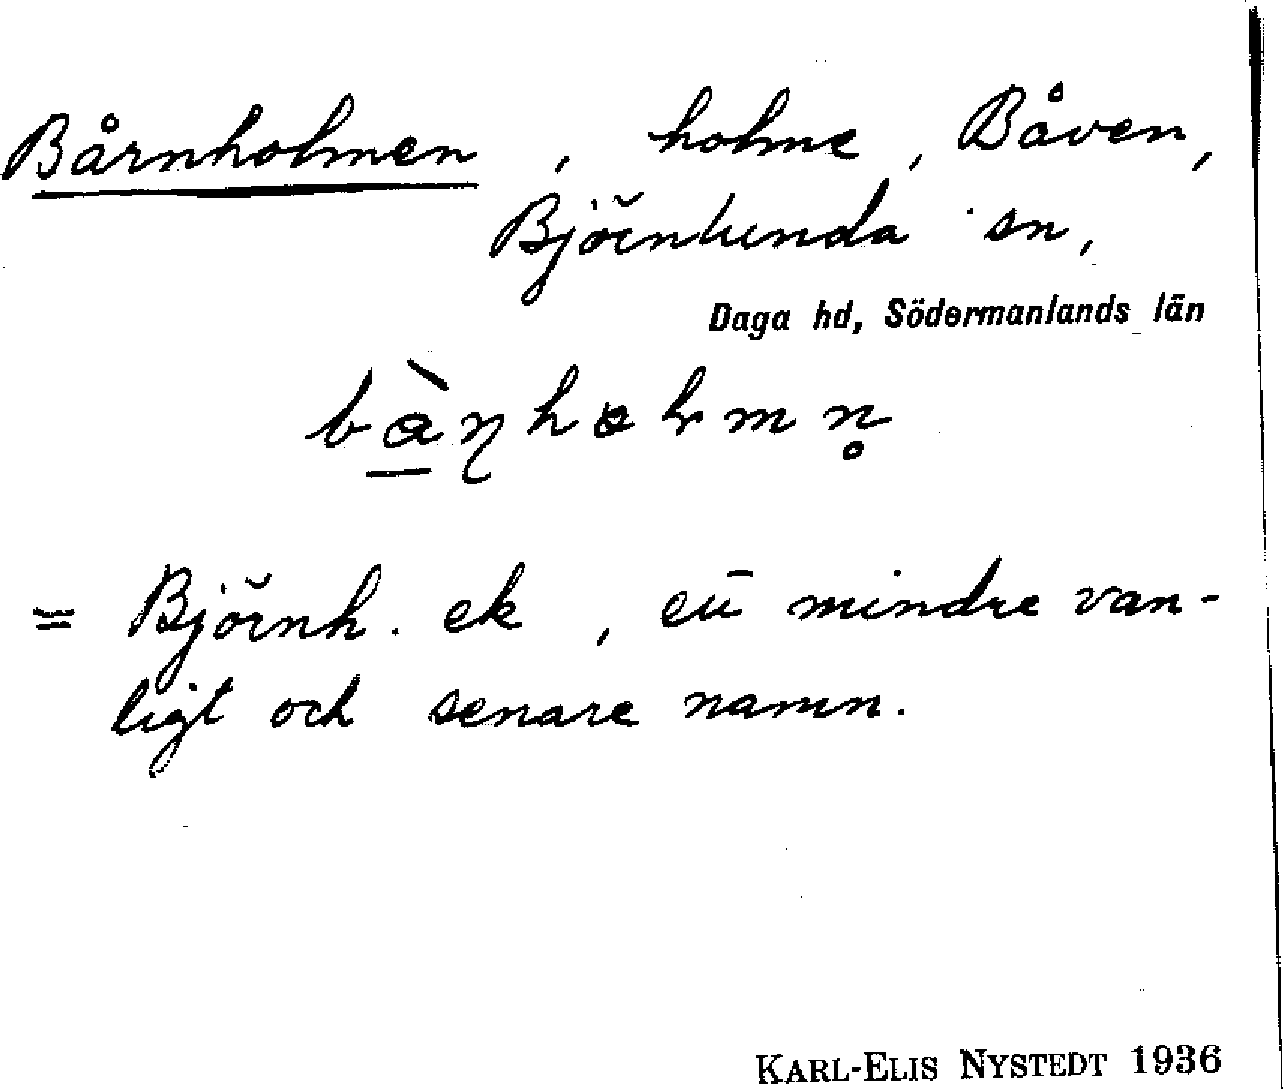 Bårnholmen, holme, Båven,
Björnlunda sn,
Daga hd, Södermanlands län
= Björnh. ek, ett mindre van-
ligt och senare namn.
KARL-ELIS NYSTEDT 1936